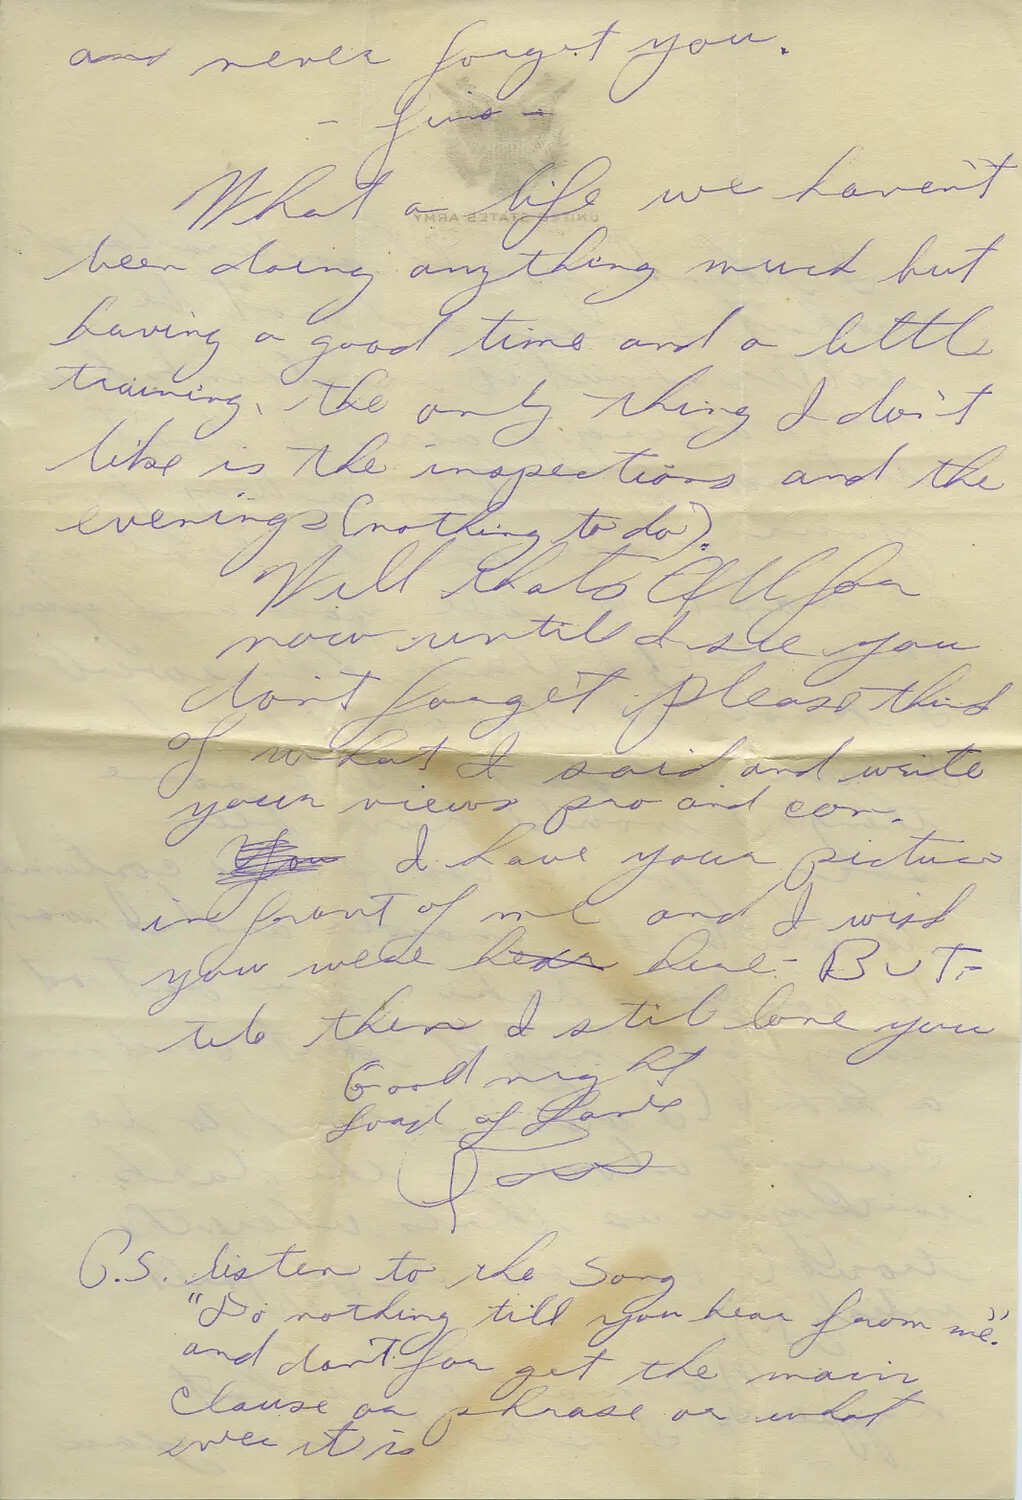 and never forget you.
- finis -
What a life we haven't
been doing anything much but
having a good time and a little
training. The only thing I don't
like is the inspections and the
evenings (nothing to do).
Well thats All for
now until I see you
don't forget please think
of what I said and write
your views pro and con.
You I have your picture
in front of me and I wish
you were hear here - BUT -
till then I still love you
Good night
Load of Love
P.S. listen to the song
"Do nothing till you hear from me".
and don't for get the main
clause or phrase or what
ever it is
UNITED STATES ARMY